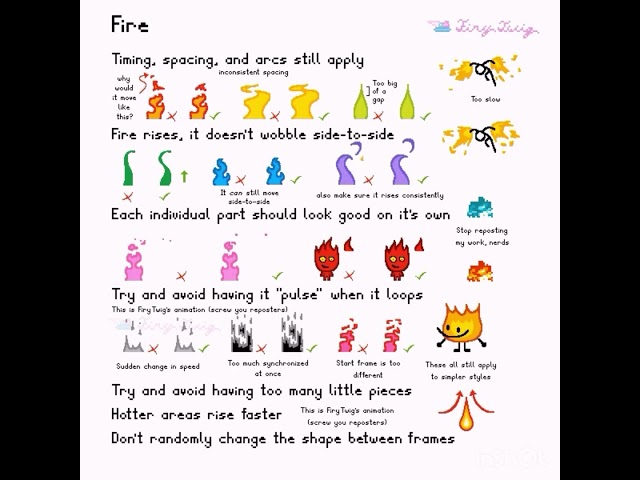 Fire
Firy Twig
Timing, spacing, and arcs still apply
inconsistent spacing
why
would
it move
like
this?
Too big
of a
gap
Too slow
Fire rises, it doesn't wobble side-to-side
It can still move
side-to-side
also make sure it rises consistently
Each individual part should look good on it's own
Stop reposting
my work, nerds
Try and avoid having it "pulse" when it loops
This is FiryTwig's animation (screw you reposters)
Firy Twig
Sudden change in speed
Too much synchronized
at once
Start frame is too
different
These all still apply
to simpler styles
Try and avoid having too many little pieces
Hotter areas rise faster
This is FiryTwig's animation
(screw you reposters)
Don't randomly change the shape between frames